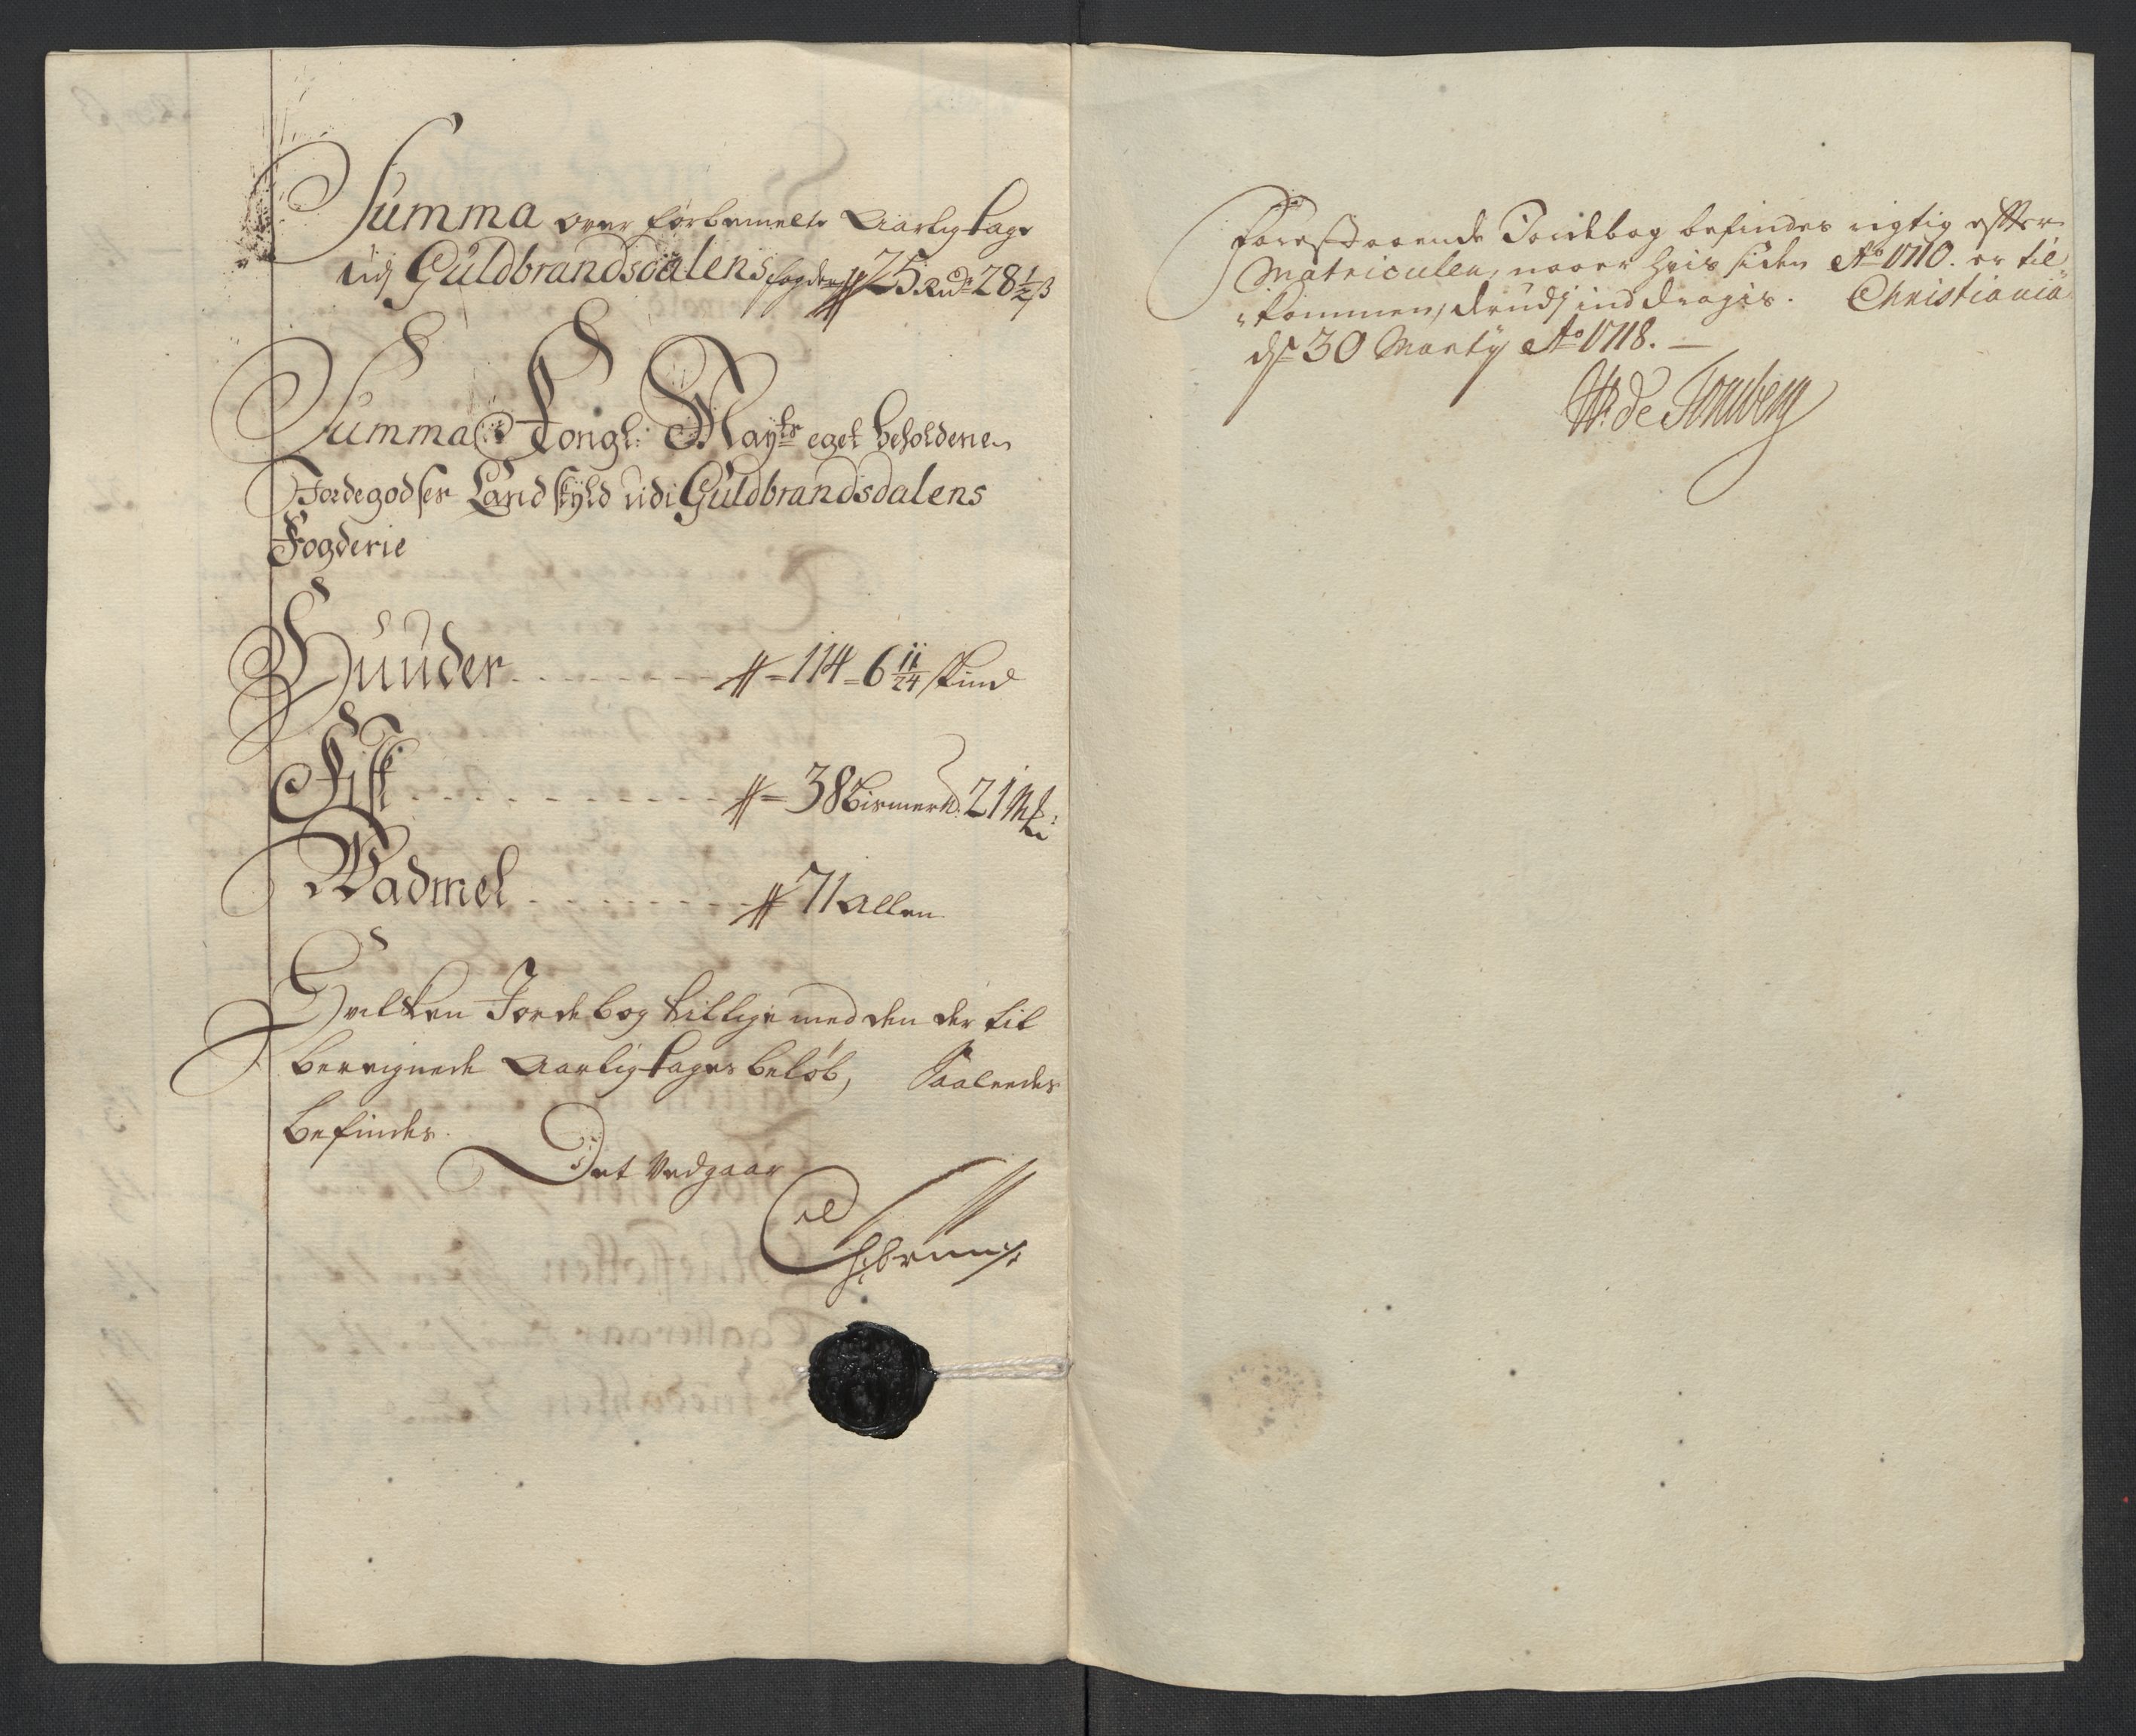 Summa over forbemelte Aarlig tage
udj Guldbrandsdalens fogderie 25 Rdr 28½ β
Summa Kongl: Mayts eget beholdene
Jordegodses Landskyld udi Guldbrandsdalens
Fogderie
Huuder - - - - - - - - 114 - 6 11/24 skind
Fisk - - - - - - - - - - - 38 Bismerpd: 21 Mk:
Wadmel - - - - - - - 71 Allen
Hvilken Jordebog tillige med den der til
beregnede Aarlig tages beløb, Saaledes
befindes.
Det Vedgaar
Forestaaende Jordebog befindes rigtig efter
Matriculen, naar hvis siden Ao 1710. er til
kommen, derudj inddragis. Christiania
dn 30 Marty Ao 1718. —
de Tonsberg